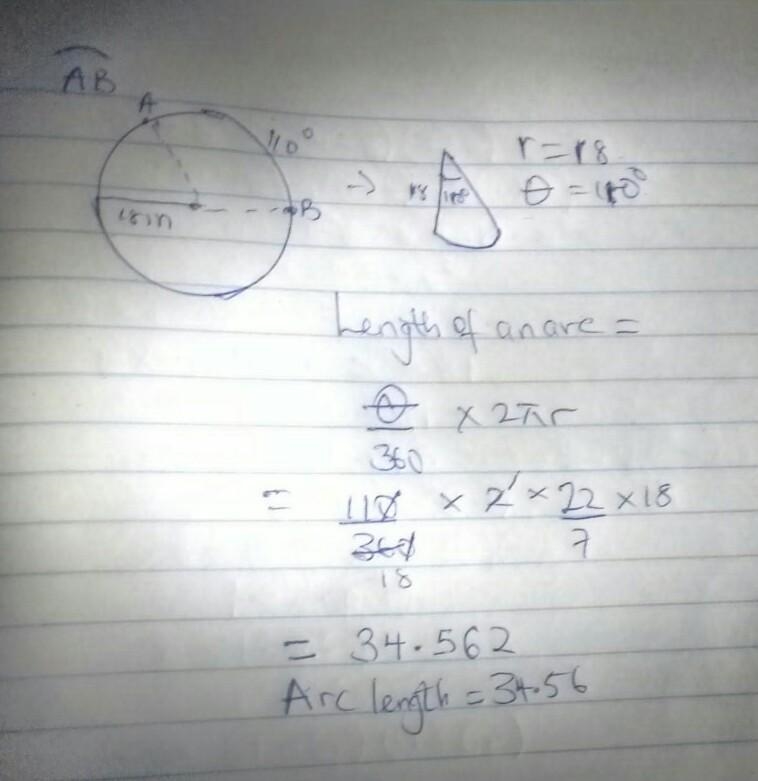 AB
A
110°
18in
B
→ 18 110
r = 18
θ = 110°
Length of an arc =
θ/360 × 2πr
= 110/360 × 2 1 × 22/7 × 18
18
= 34.562
Arc length = 34.56